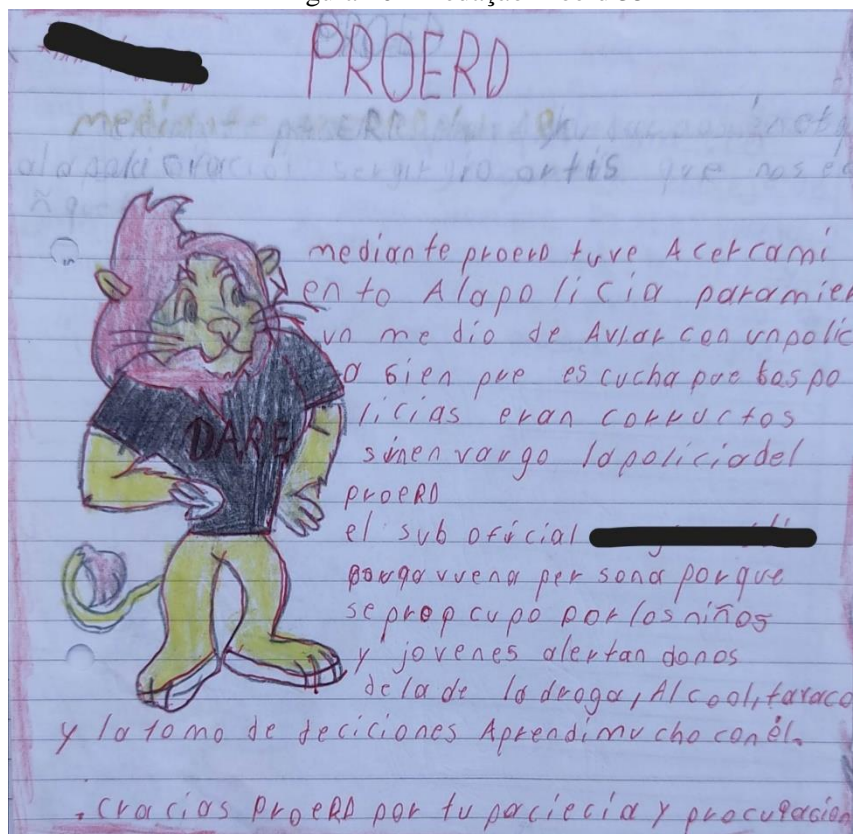 PROERD
mediante
ortis que nos
mediante proerd tuve Acercami
ento Alapolicia paramier
un me dio de Avlar con unpolic
bien pue es cucha pue
licias eran corructos
sinen vargo lapoliciadel
proeRD
el sub oficial
vuena per sona porque
se preo cupo porlosniños
y jovenes alertan donos
dela de la droga, Alcool, tavaco
y la tomo de deciciones Aprendimu cho con él.
DARE
. cracias ProeRD por tu paciecia y procupacion